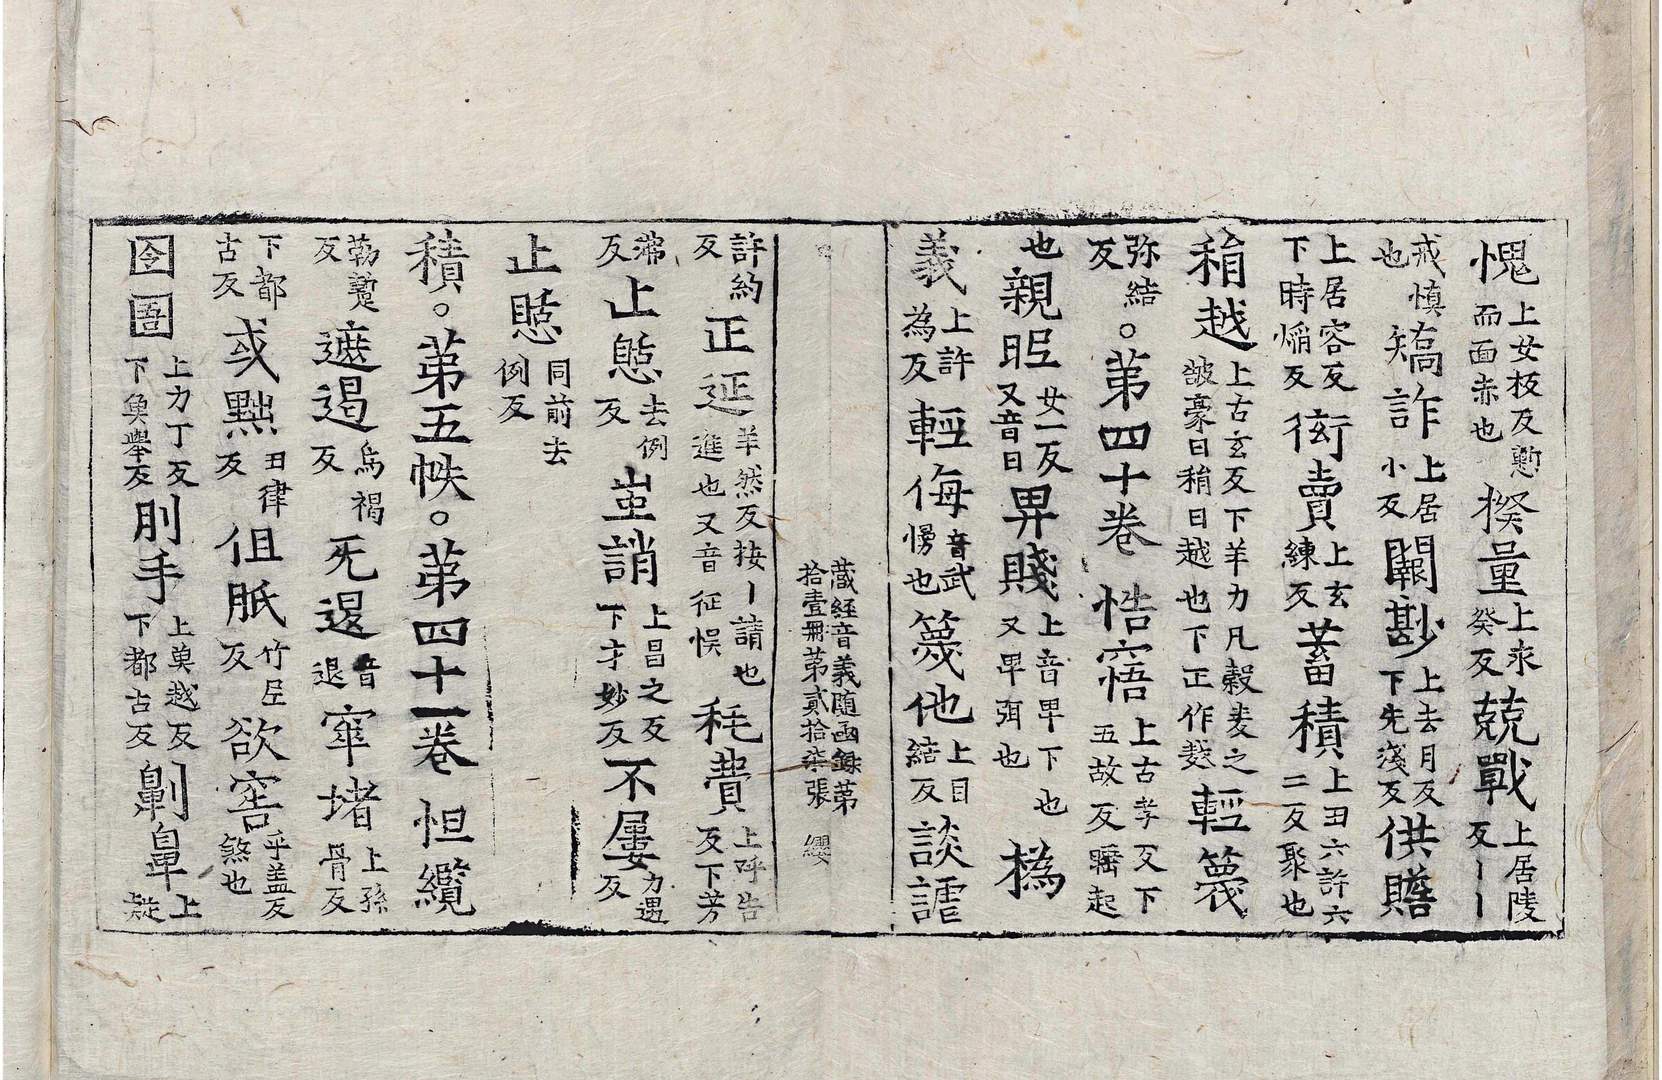 愧上女板反慙而面赤也揆量上求癸反兢戰上居陵反丨丨
戒慎也矯詐上居小反闕尠上去月反下先淺反供贍
上居容反下時焰反衒賣上玄練反蓄積上丑六許六二反聚也
稍越上古玄反下羊力反穀麦之皴豪曰稍曰越也下正作麩輕蔑
弥結反。第四十卷 悎寤上古孝反下五故反寤起
也親昵女一反又音日畀賤上音卑下也又畀弭也 撝
義上許為反輕侮音武慢也篾他上目結反談謔
藏經音義隨函錄第拾壹冊第貳拾柒張 纓
許約反正延羊然反按丨請也進也又音征悮耗費上呼告反下芳
沸反止憩去例反蚩誚上昌之反下才妙反不屢力遇反
止憩同前去例反
積。第五帙。第四十一卷 怛纜
勒蹔反遮遏烏褐反死退音退窣堵上孫骨反
下都古反或黜丑律反伹胝竹尼反欲害乎盖反煞也
囹圄上力丁反下魚舉反刖手上奠越反下都古反劓鼻上疑